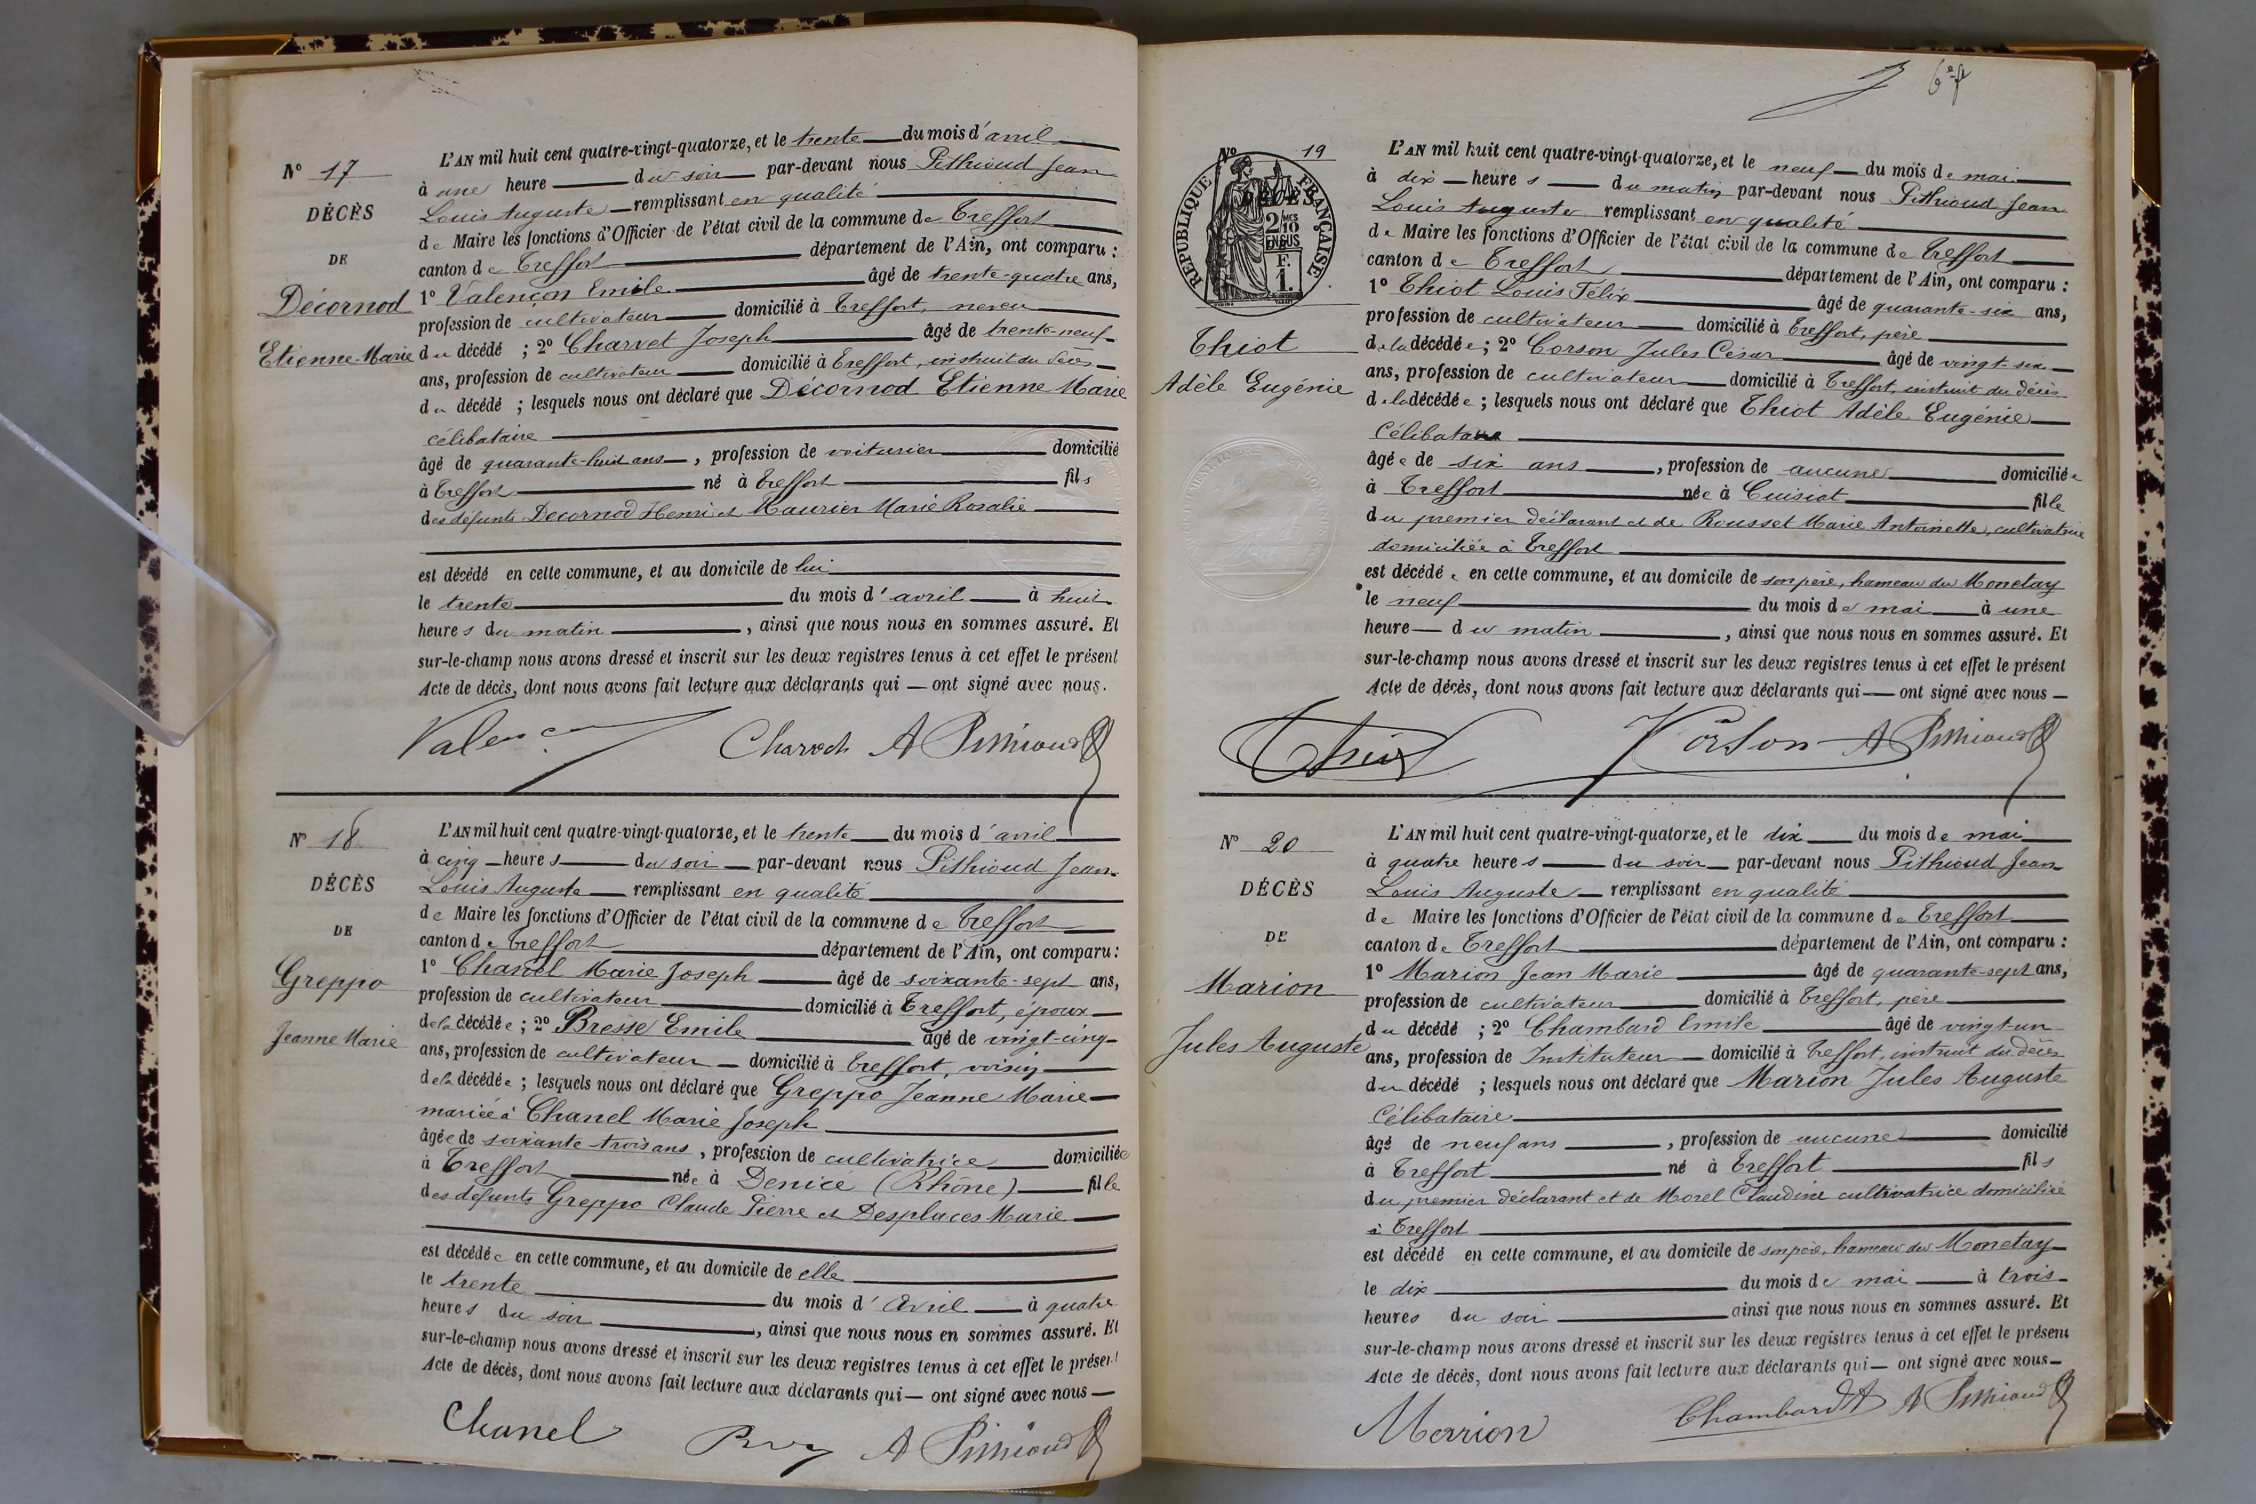 N° 17
DÉCÈS
DE
Décornod
Etienne-Marie
L'AN mil huit cent quatre-vingt-quatorze, et le trente du mois d'avril
à une heure du soir par-devant nous Pithioud Jean
Louis Auguste remplissant en qualité
de Maire les fonctions d'Officier de l'état civil de la commune de Treffort
canton de Treffort département de l'Ain, ont comparu :
1° Valençon Emile âgé de trente-quatre ans,
profession de cultivateur domicilié à Treffort, neveu
du décédé ; 2° Charvet Joseph âgé de trente-neuf
ans, profession de cultivateur domicilié à Treffort, instruit du décès
du décédé ; lesquels nous ont déclaré que Décornod Etienne Marie
célibataire
âgé de quarante-huit ans, profession de voiturier domicilié
à Treffort né à Treffort fils
des défunts Decornod Henri et Maurier Marie Rosalie
est décédé en cette commune, et au domicile de lui
le trente du mois d'avril à huit
heures du matin, ainsi que nous nous en sommes assuré. Et
sur-le-champ nous avons dressé et inscrit sur les deux registres tenus à cet effet le présent
Acte de décès, dont nous avons fait lecture aux déclarants qui — ont signé avec nous.
Valençon Charvet A Pithioud
N° 18
DÉCÈS
DE
Greppo
Jeanne Marie
L'AN mil huit cent quatre-vingt-quatorze, et le trente du mois d'avril
à cinq heures du soir par-devant nous Pithioud Jean
Louis Auguste remplissant en qualité
de Maire les fonctions d'Officier de l'état civil de la commune de Treffort
canton de Treffort département de l'Ain, ont comparu :
1° Chanel Marie Joseph âgé de soixante-sept ans,
profession de cultivateur domicilié à Treffort, époux
de la décédée ; 2° Bresse Emile âgé de vingt-cinq
ans, profession de cultivateur domicilié à Treffort, voisin
de la décédée ; lesquels nous ont déclaré que Greppo Jeanne Marie
mariée à Chanel Marie Joseph
âgée de soixante trois ans, profession de cultivatrice domiciliée
à Treffort née à Denicé (Rhône) fille
des défunts Greppo Claude Pierre et Desplaces Marie
est décédée en cette commune, et au domicile de elle
le trente du mois d'Avril à quatre
heures du soir, ainsi que nous nous en sommes assuré. Et
sur-le-champ nous avons dressé et inscrit sur les deux registres tenus à cet effet le présent
Acte de décès, dont nous avons fait lecture aux déclarants qui — ont signé avec nous —
Chanel A Pithioud
N° 19
RÉPUBLIQUE FRANÇAISE
2 MES 10 EN SUS
F. 1.
Thiot
Adèle Eugénie
L'AN mil huit cent quatre-vingt-quatorze, et le neuf du mois de mai
à dix heures du matin par-devant nous Pithioud Jean
Louis Auguste remplissant en qualité
de Maire les fonctions d'Officier de l'état civil de la commune de Treffort
canton de Treffort département de l'Ain, ont comparu :
1° Thiot Louis Félix âgé de quarante-six ans,
profession de cultivateur domicilié à Treffort, père
de la décédée ; 2° Corson Jules César âgé de vingt-six
ans, profession de cultivateur domicilié à Treffort, instruit du décès
de la décédée ; lesquels nous ont déclaré que Thiot Adèle Eugénie
Célibataire
âgée de six ans, profession de aucune domiciliée
à Treffort née à Cuisiat fille
du premier déclarant et de Rousset Marie Antoinette, cultivatrice
domiciliée à Treffort
est décédée en cette commune, et au domicile de son père, hameau du Monetay
le neuf du mois de mai à une
heure du matin, ainsi que nous nous en sommes assuré. Et
sur-le-champ nous avons dressé et inscrit sur les deux registres tenus à cet effet le présent
Acte de décès, dont nous avons fait lecture aux déclarants qui — ont signé avec nous —
Thiot Corson A Pithioud
N° 20
DÉCÈS
DE
Marion
Jules Auguste
L'AN mil huit cent quatre-vingt-quatorze, et le dix du mois de mai
à quatre heures du soir par-devant nous Pithioud Jean
Louis Auguste remplissant en qualité
de Maire les fonctions d'Officier de l'état civil de la commune de Treffort
canton de Treffort département de l'Ain, ont comparu :
1° Marion Jean Marie âgé de quarante-sept ans,
profession de cultivateur domicilié à Treffort, père
du décédé ; 2° Chambard Emile âgé de vingt-un
ans, profession de Instituteur domicilié à Treffort, instruit du décès
du décédé ; lesquels nous ont déclaré que Marion Jules Auguste
Célibataire
âgé de neuf ans, profession de aucune domicilié
à Treffort né à Treffort fils
du premier déclarant et de Morel Claudine cultivatrice domiciliée
à Treffort
est décédé en cette commune, et au domicile de son père, hameau du Monetay
le dix du mois de mai à trois
heures du soir ainsi que nous nous en sommes assuré. Et
sur-le-champ nous avons dressé et inscrit sur les deux registres tenus à cet effet le présent
Acte de décès, dont nous avons fait lecture aux déclarants qui — ont signé avec nous —
Marion Chambard A Pithioud